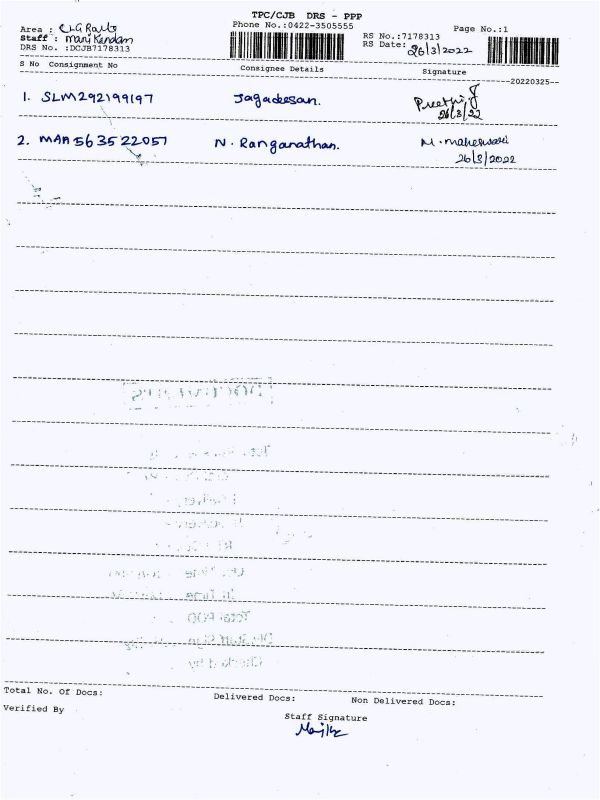 TPC/CJB DRS - PPP
Phone No.:0422-3505555
Page No.:1
Area :
Staff : Manikandan
DRS No. :DCJB7178313
RS No.:7178313
RS Date: 26/3/2022
S No Consignment No Consignee Details Signature
--20220325--
1. SLM292199197 Jagadeesan. Preethi J
26/3/22
2. MAA563522057 N. Ranganathan. M. maheswari
26/3/2022
Total No. Of Docs: Delivered Docs: Non Delivered Docs:
Verified By
Staff Signature